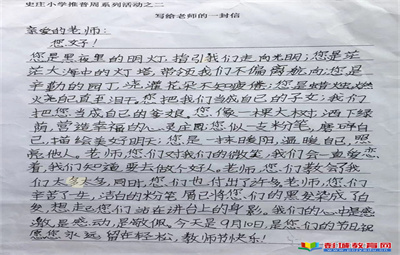 史庄小学推普周系列活动之二
写给老师的一封信
亲爱的老师：
您好！
您是黑夜里的明灯，指引我们走向光明；您是茫
茫大海中的灯塔，带领我们不偏离航向；您是
辛勤的园丁，浇灌花朵不知疲倦；您是蜡烛，燃
火尧自直至泪干。您把我们当成自己的子女；我们
把您当成自己的爹娘。您像一棵大树，洒下绿
荫，营造幸福的心灵庄园；您似一支粉笔，磨碎自
己，描绘美好明天；您是一抹暖阳，温暖自己，照
亮他人。老师，您们对我们的微笑，我们会一直爱恋
着，我们知道要去做个好人。老师，您们教会了我
们太多太多，同时，您们也付出了许多老师，您们
辛苦了一生，洁白的粉笔眉已将您们的黑发染成了白
发，想起您们站在讲台上的身影，我们的心中是感
激，是感动，是敬佩。今天是9月10日，是您们的节日祝
愿您永远留在轻松，教师节快乐！
彭城教育网